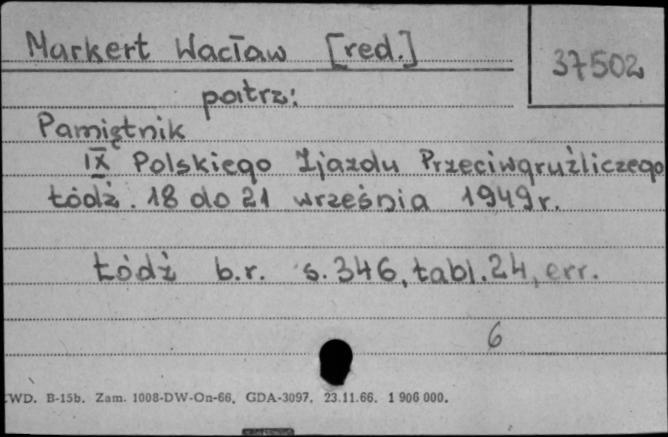 Markert Wacław [red.]
37502
patrz:
Pamiętnik
IX Polskiego Zjazdu Przeciwgruźliczego
Łódź. 18 do 21 września 1949r.
Łódź b.r. s.346, tabl.24, err.
6
WD. B-15b. Zam. 1008-DW-On-66. GDA-3097. 23.11.66. 1 906 000.